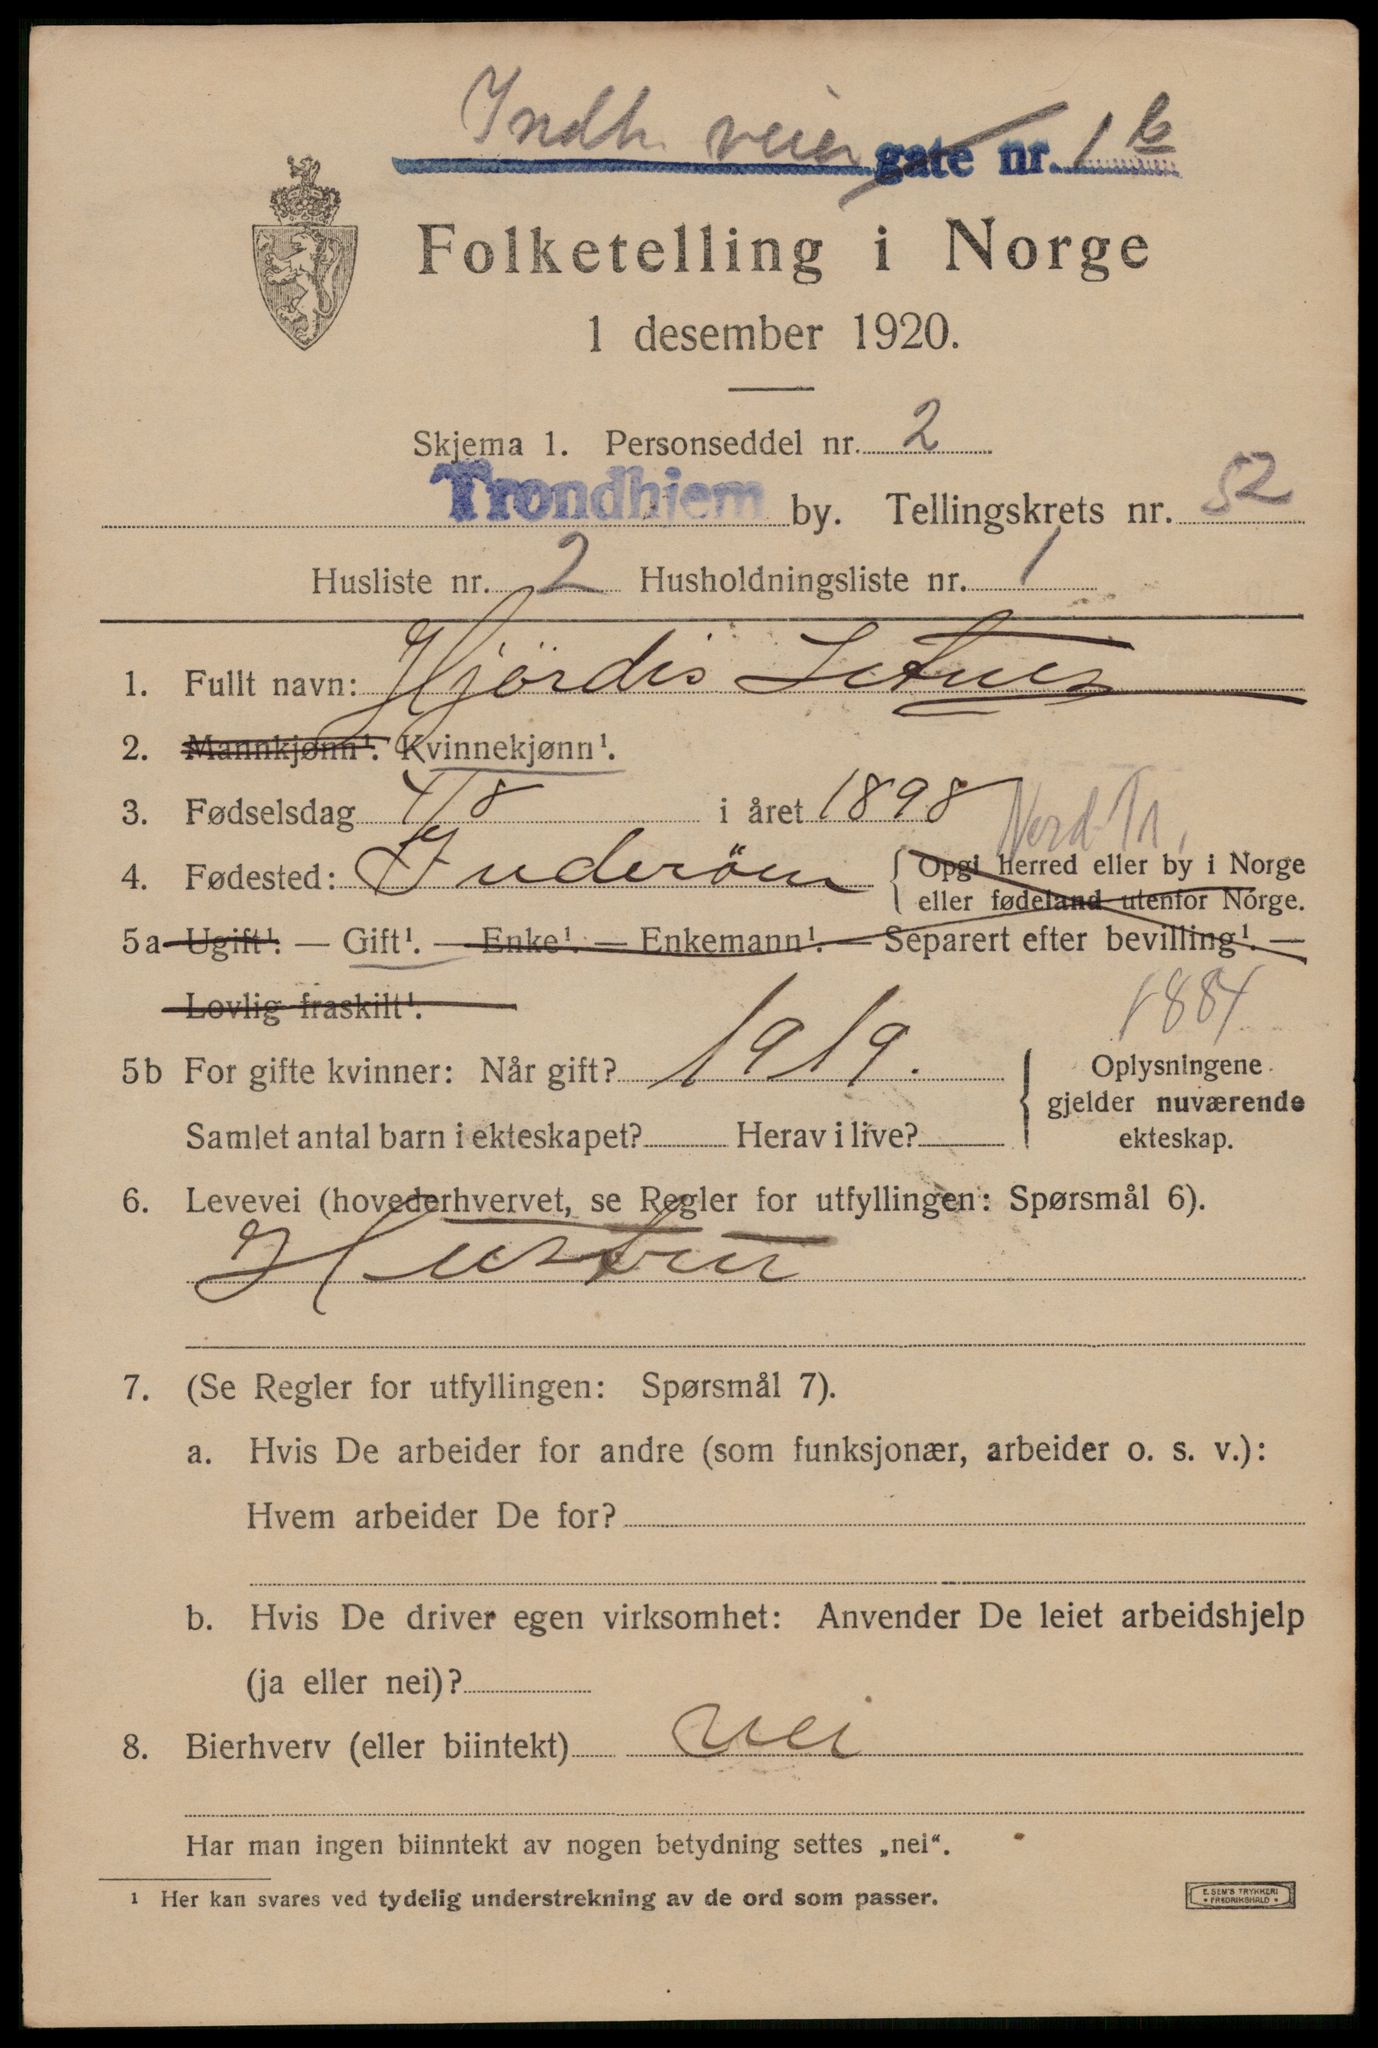 Indh. veien gate nr. 1 b
Folketelling i Norge
1 desember 1920.
Skjema 1. Personseddel nr. 2
Trondhjem by. Tellingskrets nr. 52
Husliste nr. 2 Husholdningsliste nr. 1
1. Fullt navn: Hjördis Letnes
2. Mannkjønn¹. Kvinnekjønn¹.
3. Fødselsdag 4/8 i året 1898
Nord Tr.
4. Fødested: Inderöen { Opgi herred eller by i Norge
eller fødeland utenfor Norge.
5a Ugift¹. — Gift¹. — Enke¹. — Enkemann¹. — Separert efter bevilling¹. —
Lovlig fraskilt¹.
1884
5b For gifte kvinner: Når gift? 1919. { Oplysningene
gjelder nuværende
Samlet antal barn i ekteskapet? Herav i live? ekteskap.
6. Levevei (hovederhvervet, se Regler for utfyllingen: Spørsmål 6).
Hustru
7. (Se Regler for utfyllingen: Spørsmål 7).
a. Hvis De arbeider for andre (som funksjonær, arbeider o. s. v.):
Hvem arbeider De for?
b. Hvis De driver egen virksomhet: Anvender De leiet arbeidshjelp
(ja eller nei)?
8. Bierhverv (eller biintekt) nei
Har man ingen biinntekt av nogen betydning settes „nei“.
¹ Her kan svares ved tydelig understrekning av de ord som passer.
E. SEM'S TRYKKERI
• FREDRIKSHALD •